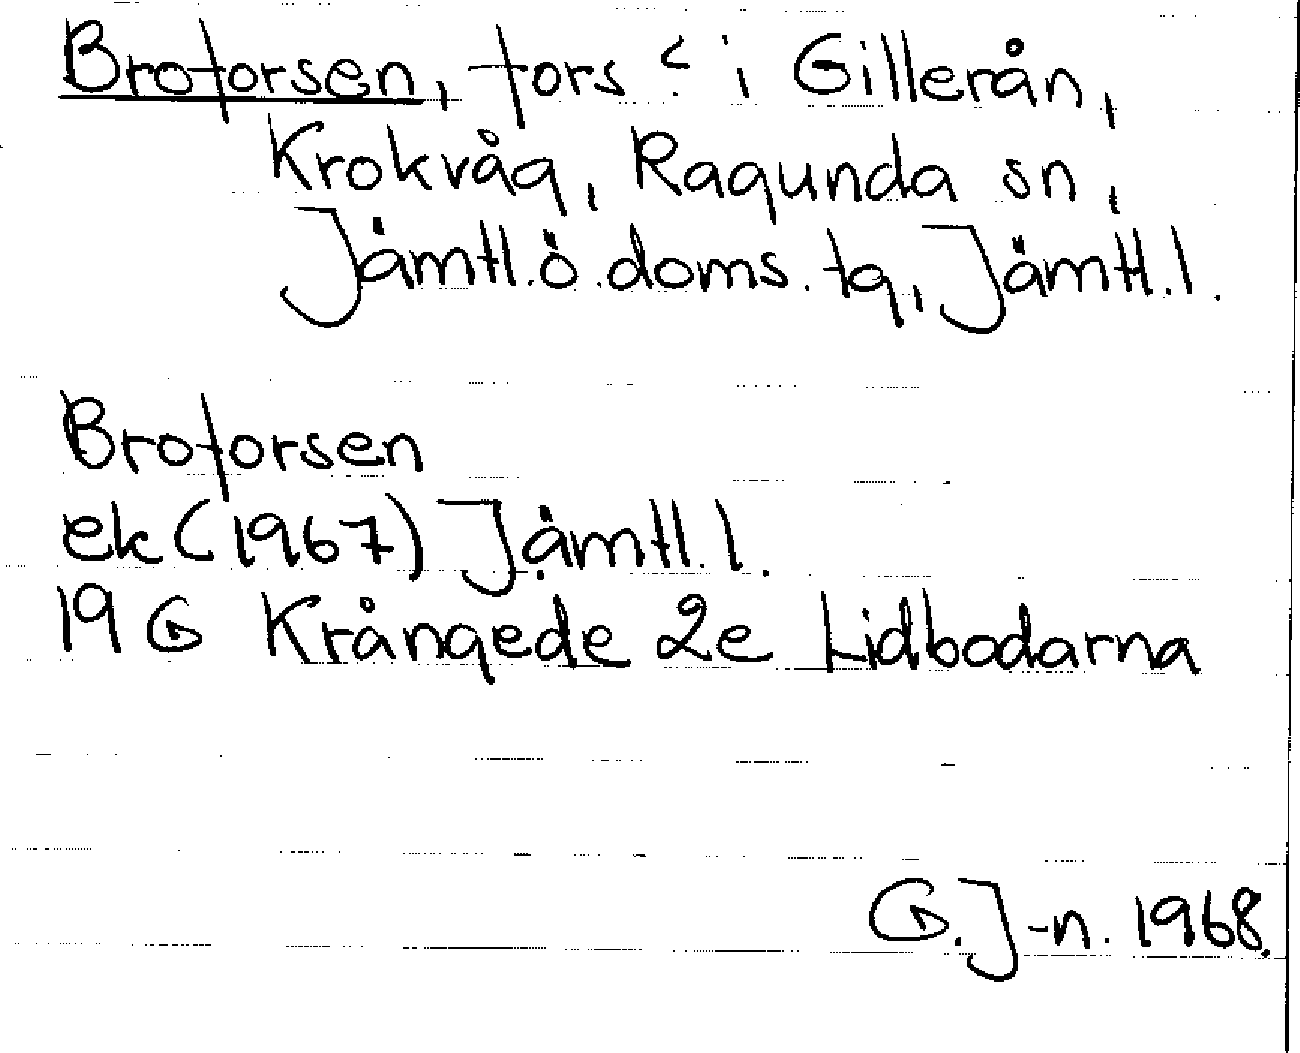 Broforsen, fors < i Gillerån,
Krokvåg, Ragunda sn,
Jämtl.ö.doms.tg, Jämtl.l.
Broforsen
ek (1967) Jämtl.l.
19 G Krångede 2e Lidbodarna
G.J-n. 1968.